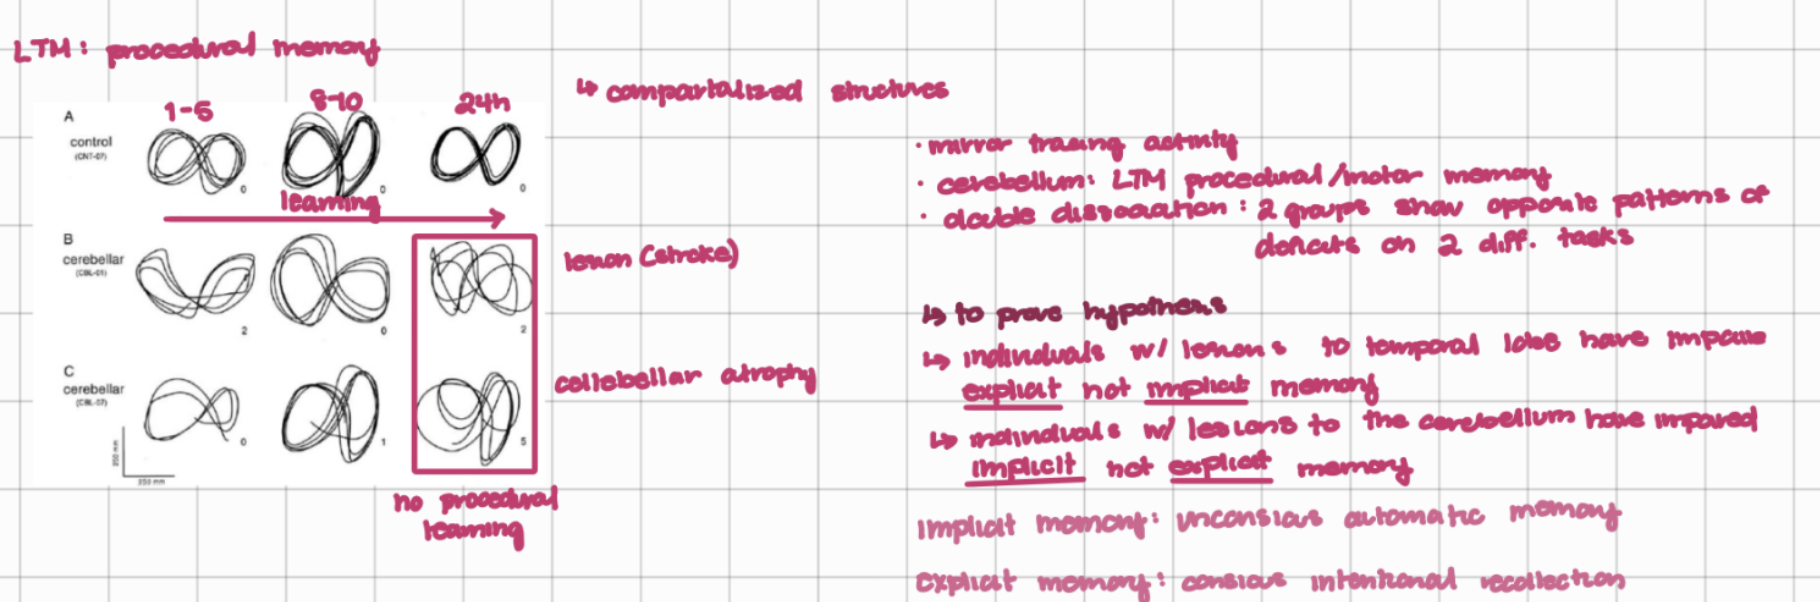 LTM: procedural memory
↳ compartalized structures
1-5 8-10 24h
A
control
(CNT-07)
0 0 0
learning
B
cerebellar
(CBL-01)
2 0 2
lesion (stroke)
C
cerebellar
(CBL-07)
0 1 5
cellebellar atrophy
250 mm
250 mm
no procedural
learning
· mirror tracing activity
· cerebellum: LTM procedural/motor memory
· double dissociation: 2 groups show opposite patterns of
deficits on 2 diff. tasks
↳ to prove hypothesis
↳ individuals w/ lesions to temporal lobe have impaire
explicit not implicit memory
↳ individuals w/ lesions to the cerebellum have impared
implicit not explicit memory
implicit memory: unconsious automatic memory
explicit memory: consious intentional recollection